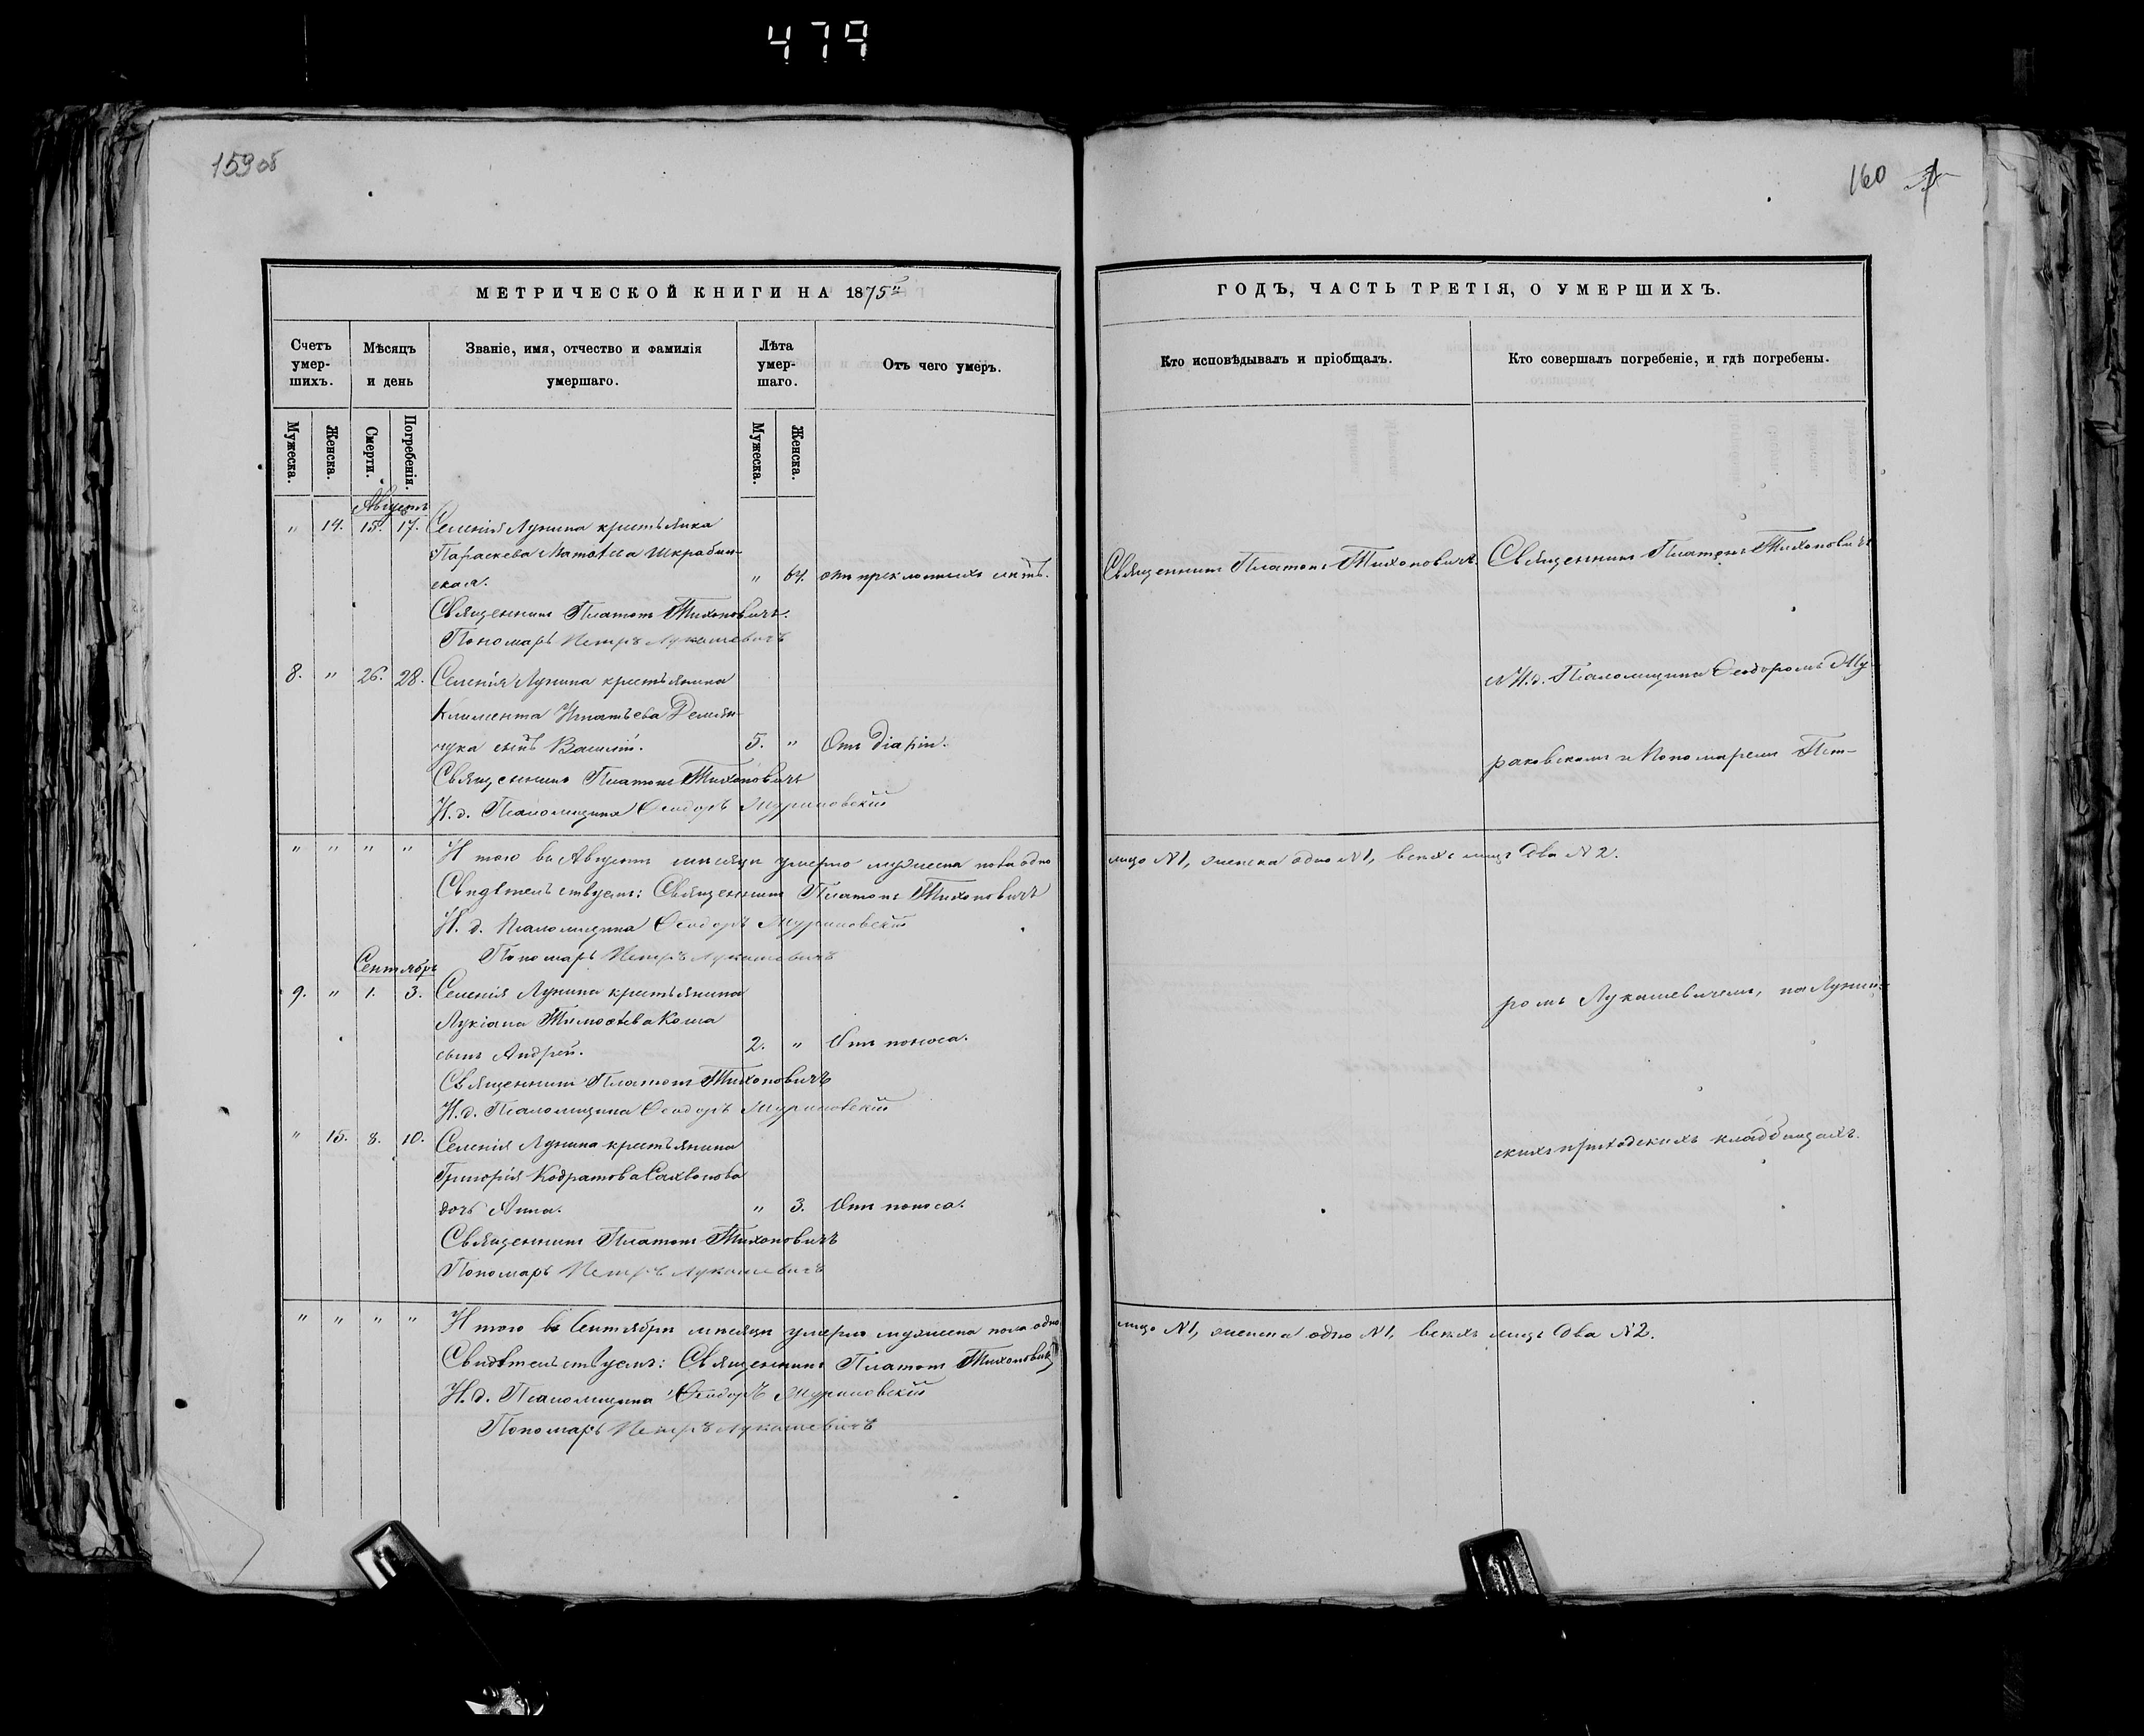 479
159 об
160
МЕТРИЧЕСКОЙ КНИГИ НА 1875й
Счетъ умер-шихъ.
Мѣсяцъ и день
Званіе, имя, отчество и фамилія умершаго.
Лѣта умер-шаго.
Отъ чего умеръ.
Мужеска.
Женска.
Смерти.
Погребенія.
Мужеска.
Женска.
Августъ
" 14. 15. 17. Селенія Лунина крестьянка
Параскева Матвѣева Шкрабин-
ская. " 64. отъ преклонныхъ лѣтъ.
Священникъ Платонъ Тихоновичъ.
Пономарь Петръ Лукашевичъ
8. " 26. 28. Селенія Лунина крестьянина
Климента Игнатьева Демьян-
чука сынъ Василій. 5. " Отъ діаріи.
Священникъ Платонъ Тихоновичъ
И. д. Псаломщика Ѳеодоръ
" " " " Итого въ Августѣ мѣсяцѣ умерло мужеска пола одно
Свидѣтельствуемъ: Священникъ Платонъ Тихоновичъ
И. д. Псаломщика Ѳеодоръ
Пономарь Петръ Лукашевичъ
Сентябрь
9. " 1. 3. Селенія Лунина крестьянина
Лукіана Тимоѳѣева Коша
сынъ Андрей. 2. " Отъ поноса.
Священникъ Платонъ Тихоновичъ
И. д. Псаломщика Ѳеодоръ
" 15. 8. 10. Селенія Лунина крестьянина
Григорія Кодратова Сахвонова
дочь Анна. " 3. Отъ поноса.
Священникъ Платонъ Тихоновичъ
Пономарь Петръ Лукашевичъ
" " " " Итого въ Сентябрѣ мѣсяцѣ умерло мужеска пола одно
Свидѣтельствуемъ: Священникъ Платонъ Тихоновичъ
И. д. Псаломщика Ѳеодоръ
Пономарь Петръ Лукашевичъ
ГОДЪ, ЧАСТЬ ТРЕТІЯ, О УМЕРШИХЪ.
Кто исповѣдывалъ и пріобщалъ.
Кто совершалъ погребеніе, и гдѣ погребены.
Священникъ Платонъ Тихоновичъ.
Священникъ Платонъ Тихоновичъ
съ И. д. Псаломщика Ѳеодоромъ Му-
и Пономаремъ Пет-
лицо №1, женска одно №1, всѣхъ лицъ два №2.
ромъ Лукашевичемъ, на Лунин-
скихъ приходскихъ кладбищахъ.
лицо №1, женска одно №1, всѣхъ лицъ два №2.